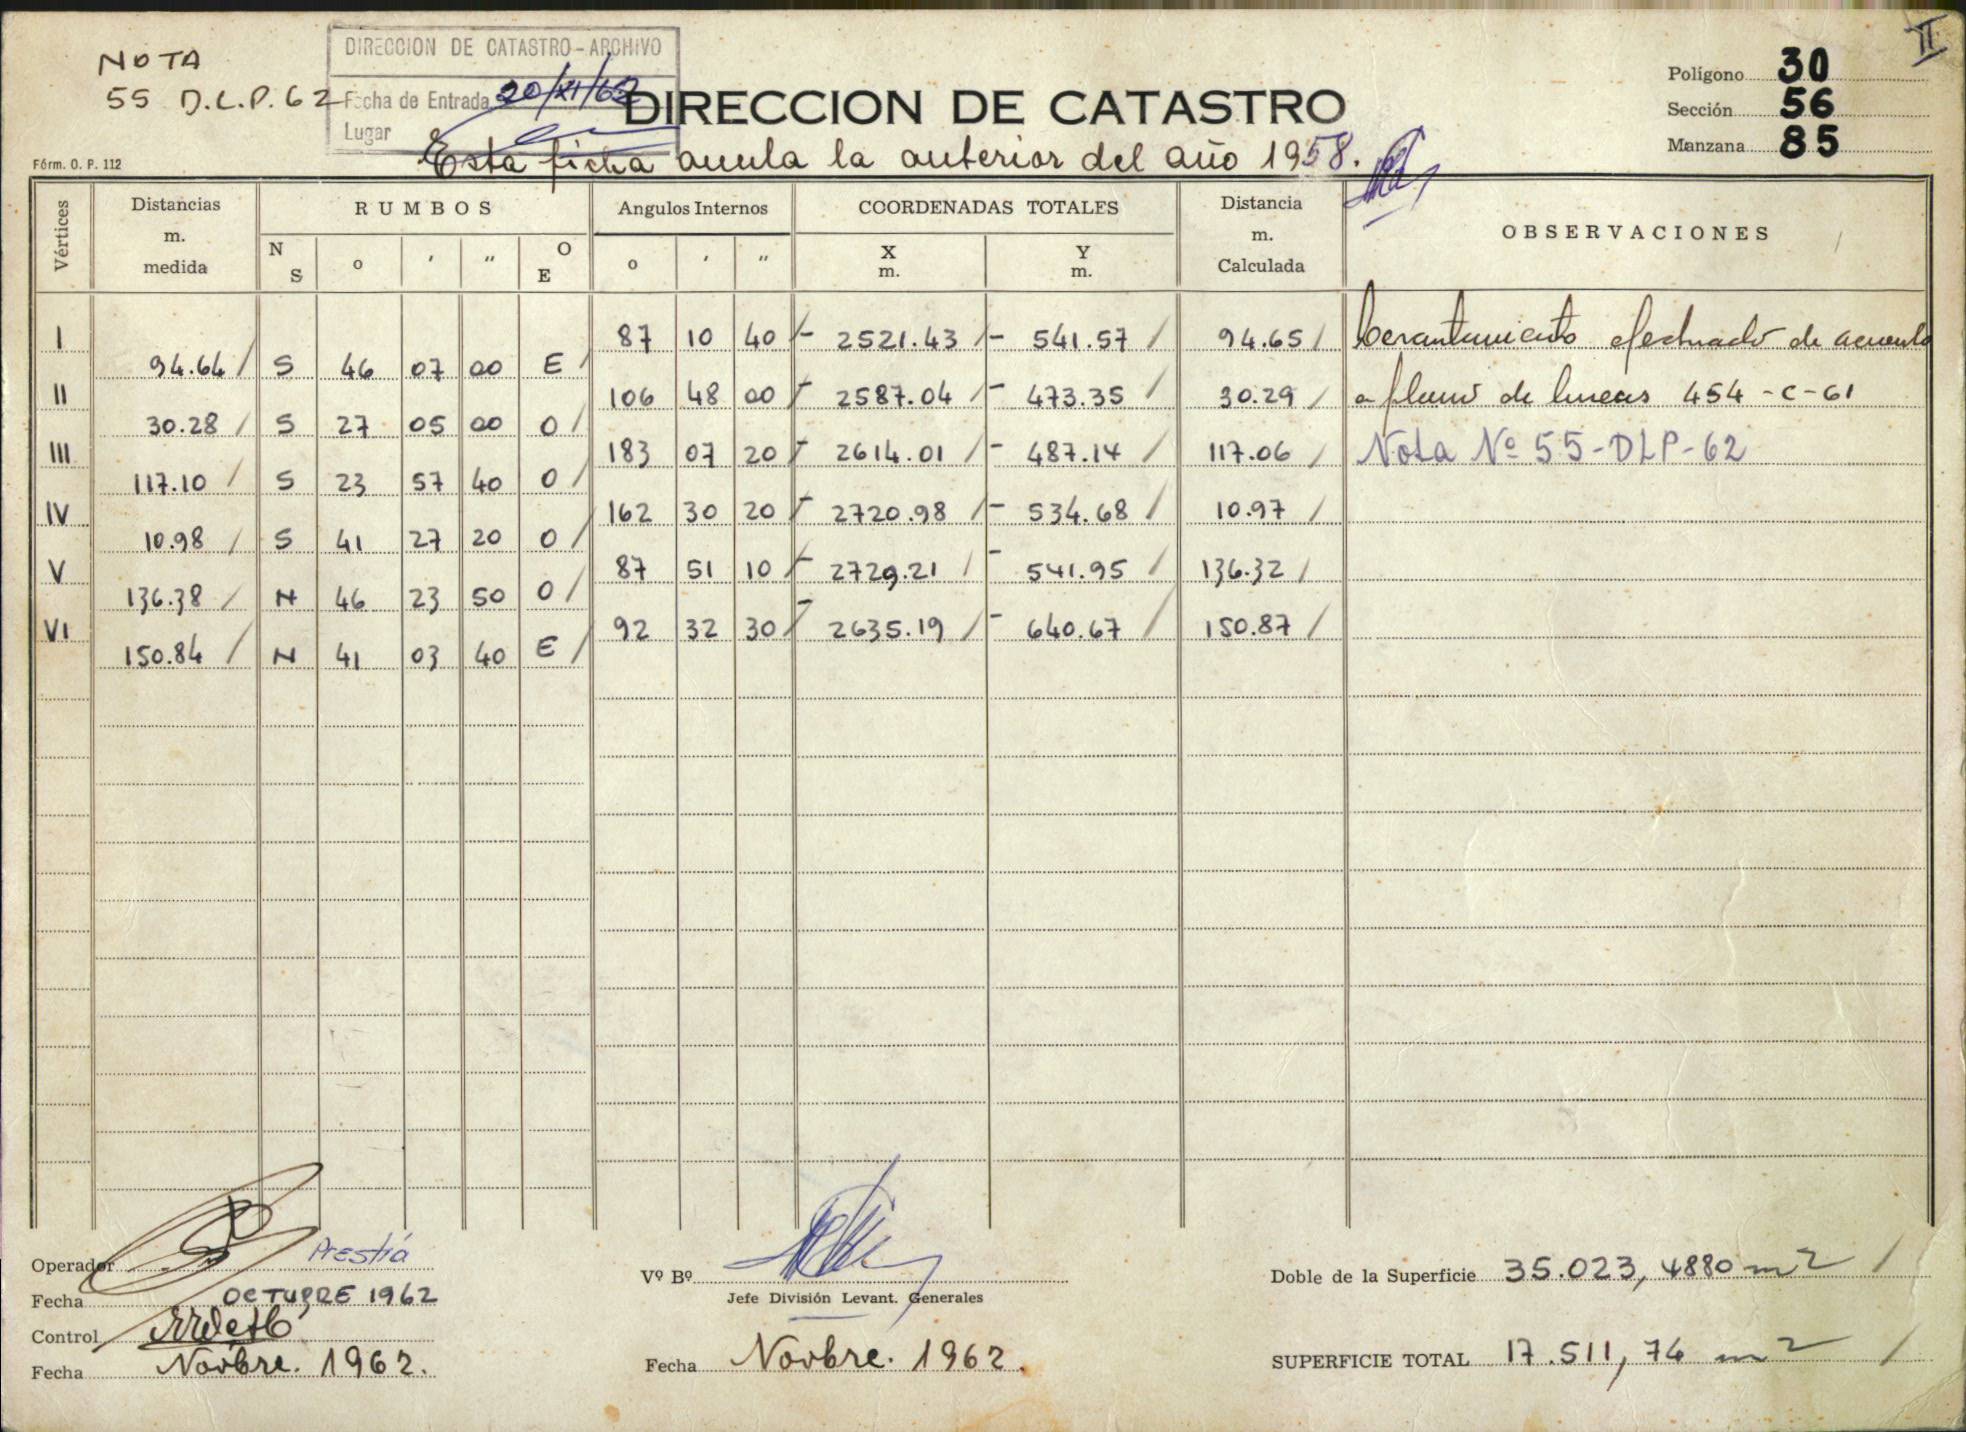 II
NOTA
55 D.L.P. 62
DIRECCION DE CATASTRO-ARCHIVO
Fecha de Entrada 20/XI/62
Lugar
DIRECCION DE CATASTRO
Polígono 30
Sección 56
Manzana 85
Esta ficha anula la anterior del año 1958.
Fórm. O. P. 112
Vértices Distancias m. medida RUMBOS Angulos Internos COORDENADAS TOTALES Distancia m. Calculada OBSERVACIONES
N S o ' " O E o ' " X m. Y m.
I 87 10 40 - 2521.43 - 541.57 94.65 Levantamiento efectuado de acuerdo
94.64 S 46 07 00 E
II 106 48 00 - 2587.04 - 473.35 30.29 a plano de lineas 454-C-61
30.28 S 27 05 00 O
III 183 07 20 - 2614.01 - 487.14 117.06 Nota Nº 55-DLP-62
117.10 S 23 57 40 O
IV 162 30 20 - 2720.98 - 534.68 10.97
10.98 S 41 27 20 O
V 87 51 10 - 2729.21 - 541.95 136.32
136.38 N 46 23 50 O
VI 92 32 30 - 2635.19 - 640.67 150.87
150.84 N 41 03 40 E
Operador Prestiá
Fecha OCTUBRE 1962
Control
Fecha Novbre. 1962.
Vº Bº
Jefe División Levant. Generales
Fecha Novbre. 1962.
Doble de la Superficie 35.023,4880 m2
SUPERFICIE TOTAL 17.511,74 m2